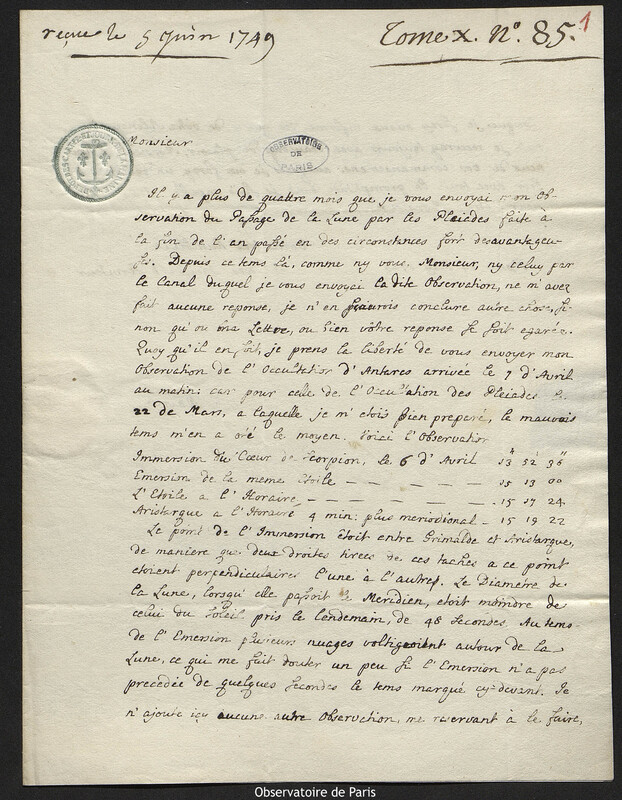 reçue le 5 Juin 1749
Tome X. N.° 85.
1
OBSERVATOIRE
DE
PARIS
Monsieur
Il y a plus de quattre mois que je vous envoyai mon Ob-
servation du Passage de la Lune par les Pleiades faite à
la fin de l'an passé en des circonstances fort desavantageu-
ses. Depuis ce tems là, comme ny vous, Monsieur, ny celuy par
le Canal duquel je vous envoyai la dite Observation, ne m'avez
fait aucune reponse, je n'en sçaurois conclure autre chose, si-
non qu'ou ma Lettre, ou bien vôtre reponse se soit egarée.
Quoy qu'il en soit, je prens la liberté de vous envoyer mon
Observation de l'Occultation d'Antares arrivée le 7 d'Avril
au matin: car pour celle de l'Occultation des Pleiades le
22 de Mars, a laquelle je m'etois bien preparé, le mauvois
tems m'en a ôté le moyen. Voici l'Observation
Immersion du Cœur de Scorpion, le 6 d'Avril 13 52 36
Emersion de la meme Etoile — — — — 15 13 00
L'Etoile a l'Horaire — — — — — 15 17 24
Aristarque a l'Horaire 4 min: plus meridional — 15 19 22
Le point de l'Immersion étoit entre Grimalde et Aristarque,
de maniere que deux droites tirées de ces taches a ce point
etoient perpendiculaires l'une à l'autre. Le Diametre de
la Lune, lorsqu'elle passoit le Meridien, etoit moindre de
celui du Soleil pris le lendemain, de 48 secondes. Au tems
de l'Emersion plusieurs nuages voltigeoient autour de la
Lune, ce qui me fait douter un peu si l'Emersion n'a pas
precedée de quelques secondes le tems marqué cy-devant. Je
n'ajoute icy aucune autre Observation, me reservant à le faire,
Observatoire de Paris